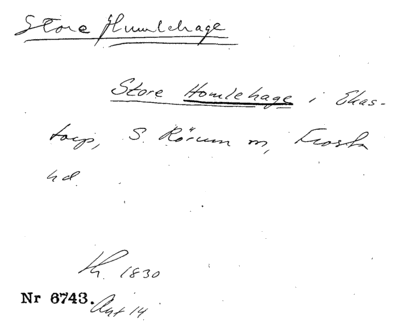 Store Humlehage
Store Homlehage i Ekas-
torp, S. Rörum sn, Frosta
hd.
1830
Nr 6743.
Akt 14